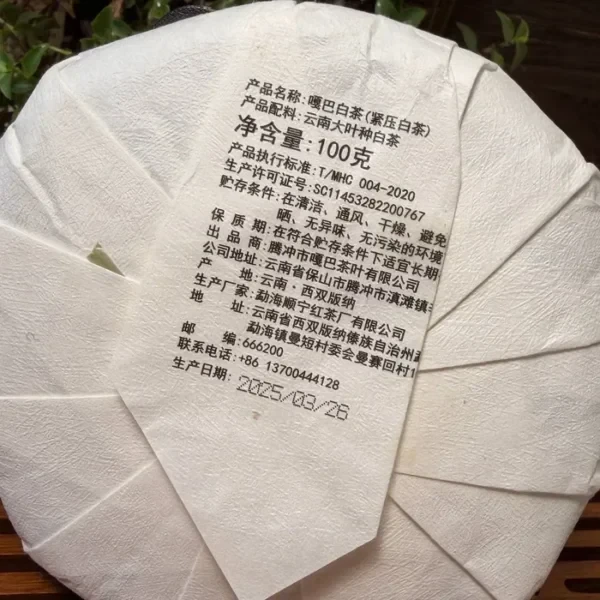 产品名称:嘎巴白茶(紧压白茶)
产品配料:云南大叶种白茶
净含量:100克
产品执行标准:T/MHC 004-2020
生产许可证号:SC11453282200767
贮存条件:在清洁、通风、干燥、避免
晒、无异味、无污染的环境
保质期:在符合贮存条件下适宜长期
出品商:腾冲市嘎巴茶叶有限公司
公司地址:云南省保山市腾冲市滇滩镇
产地:云南·西双版纳
生产厂家:勐海顺宁红茶厂有限公司
地址:云南省西双版纳傣族自治州勐
勐海镇曼短村委会曼赛回村1
邮编:666200
联系电话:+86 13700444128
生产日期:2025/03/26